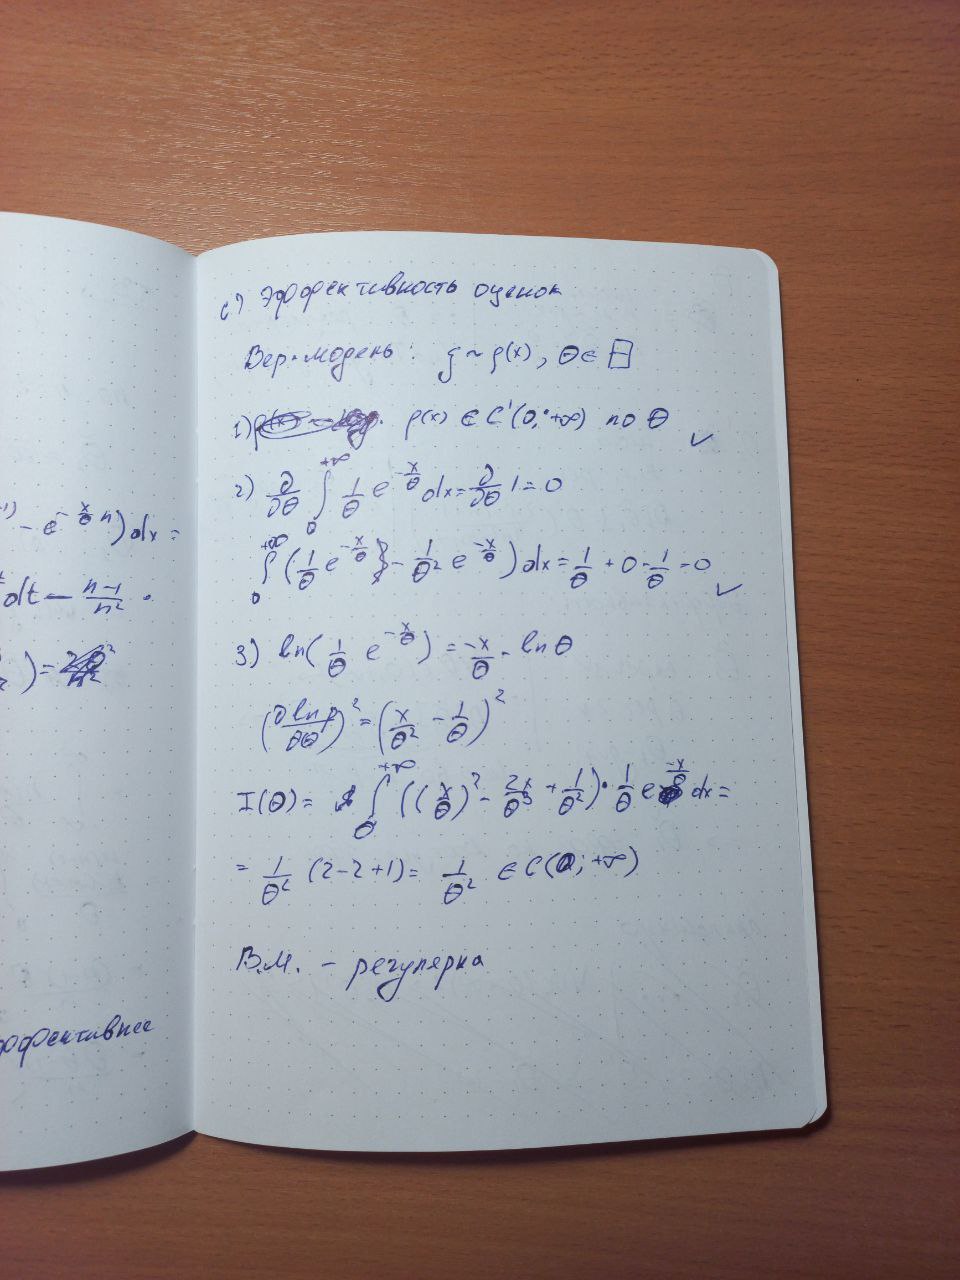 - e^{-\frac{x}{θ} n}) dx =
dt - \frac{n-1}{n^2} .
эффективнее
c) Эффективность оценок
Вер. модель: ξ ~ p(x), θ ∈ Θ
1) p(x) ∈ C^1(0; +∞) по θ ✓
2) \frac{∂}{∂θ} \int_0^{+∞} \frac{1}{θ} e^{-\frac{x}{θ}} dx = \frac{∂}{∂θ} 1 = 0
\int_0^{+∞} (\frac{1}{θ} e^{-\frac{x}{θ}} - \frac{1}{θ^2} e^{-\frac{x}{θ}}) dx = \frac{1}{θ} + 0 - \frac{1}{θ} = 0 ✓
3) ln(\frac{1}{θ} e^{-\frac{x}{θ}}) = \frac{-x}{θ} - ln θ
(\frac{∂ ln p}{∂θ})^2 = (\frac{x}{θ^2} - \frac{1}{θ})^2
I(θ) = \int_0^{+∞} ((\frac{x}{θ})^2 - \frac{2x}{θ^3} + \frac{1}{θ^2}) · \frac{1}{θ} e^{\frac{-x}{θ}} dx =
= \frac{1}{θ^2} (2-2+1) = \frac{1}{θ^2} ∈ C(0; +∞)
В.М. - регулярка